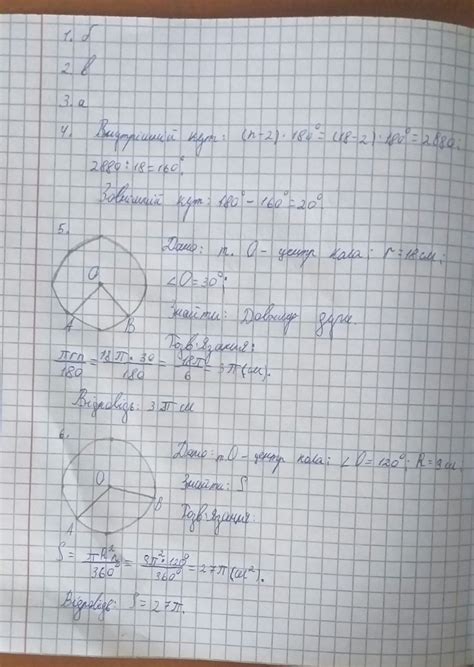 1. б
2 в
3. а
4. Внутрішній кут: (n-2)·180° = (18-2)·180° = 2880;
2880 : 18 = 160°.
Зовнішній кут: 180° - 160° = 20°
5.
Дано: т. О - центр кола; r = 18 см;
∠О = 30°;
Знайти: Довжину дуги.
О
А В
Розв'язання:
πrn/180 = 18π·30/180 = 18π/6 = 3π (см).
Відповідь: 3π см
6.
Дано: т.О - центр кола; ∠О = 120°; R = 9 см
Знайти: S
О
А В
Розв'язання.
S = πR²n/360° = = 27π (см²).
Відповідь: S = 27π.